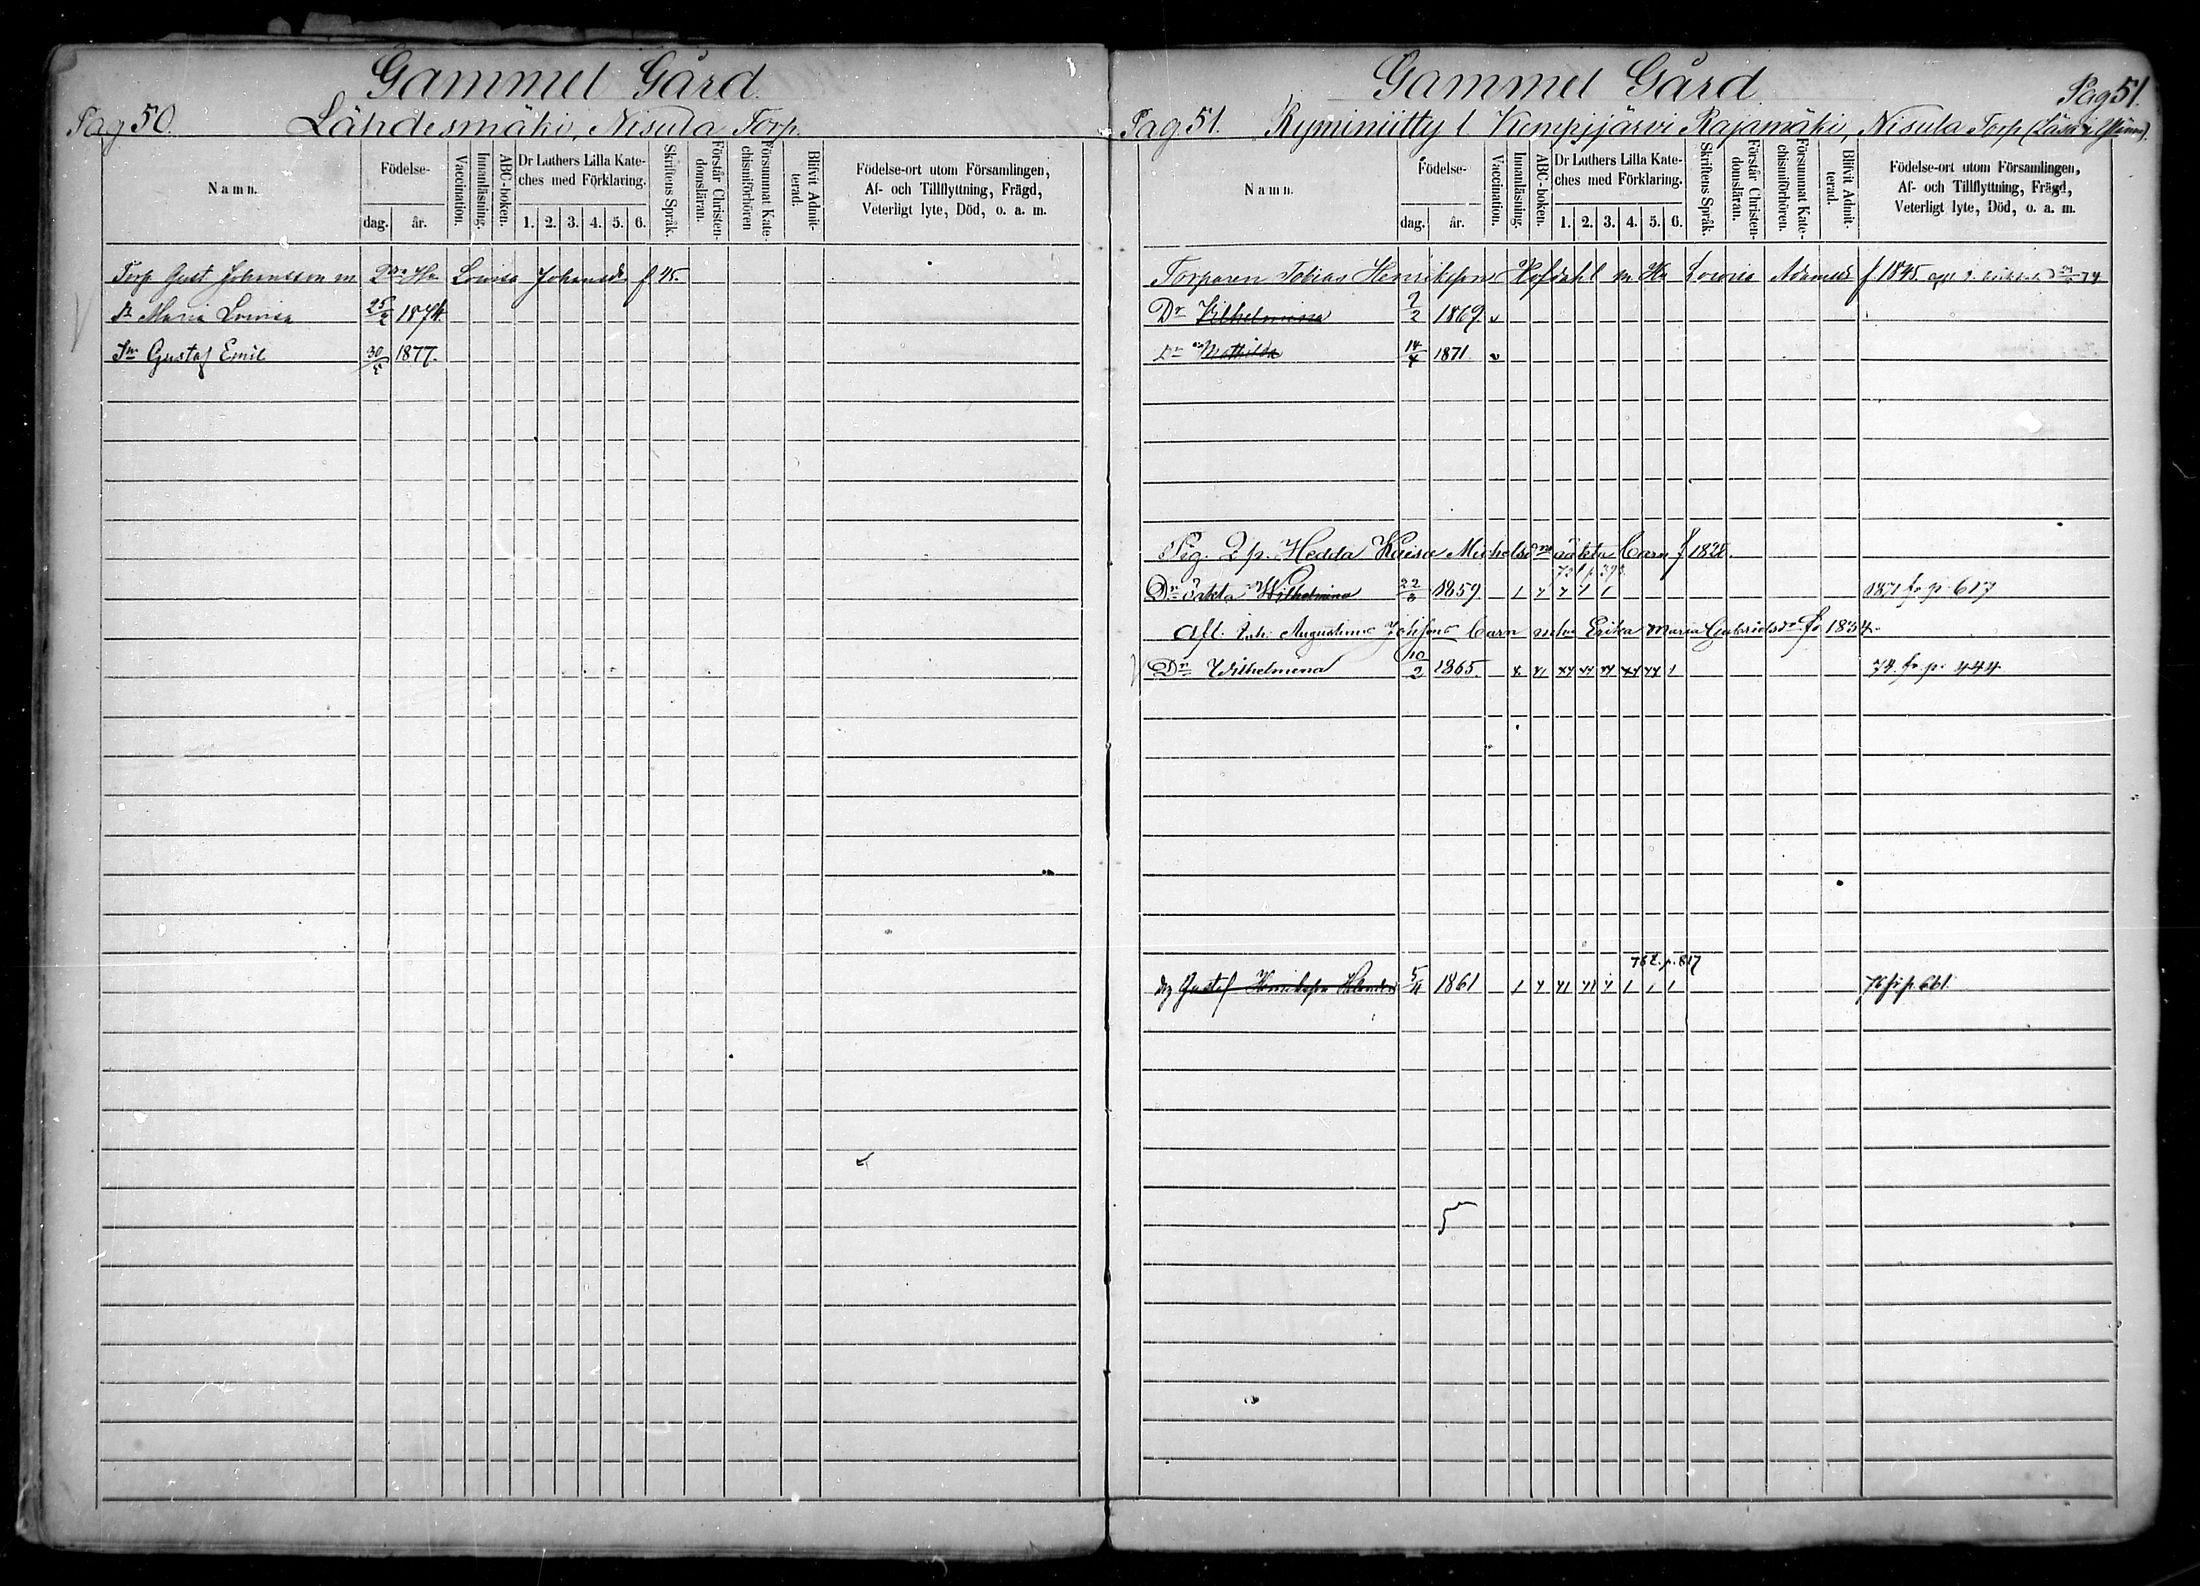 Gammel Gård
Pag 50. Lähdesmäki, Nisula Torp.
Namn.
Födelse-
dag. år.
Vaccination.
Innanläsning.
ABC-boken.
Dr Luthers Lilla Kate-
ches med Förklaring.
1. 2. 3. 4. 5. 6.
Skriftens Språk.
Förstår Christen-
domsläran.
Försummat Kate-
chismiförhören
Blifvit Admit-
terad.
Födelse-ort utom Församlingen,
Af- och Tillflyttning, Frägd,
Veterligt lyte, Död, o. a. m.
Torp Gust Johansson m Hu Lovisa Johansdr f 45.
Dr Maria Lovisa 25/2 1874.
Sn Gustaf Emil 30/5 1877.
Gammel Gård Pag 51.
Pag 51. Kyminiitty l Kempjärvi Rajamäki, Nisula Torp
Namn.
Födelse-
dag. år.
Vaccination.
Innanläsning.
ABC-boken.
Dr Luthers Lilla Kate-
ches med Förklaring.
1. 2. 3. 4. 5. 6.
Skriftens Språk.
Förstår Christen-
domsläran.
Försummat Kate-
chismiförhören.
Blifvit Admit-
terad.
Födelse-ort utom Församlingen,
Af- och Tillflyttning, Frägd,
Veterligt lyte, Död, o. a. m.
Torparen Tobias Henriksson Hofdahl m Hu Lovisa Adamsdr f 1845
Dr Vilhelmina 2/2 1869. v
Dr Mathilda 14/4 1871 v
Pig. Hedda Kaisa Michelsdrs oäkta barn f 1828.
72 t p. 393.
Dr oäkta Wilhelmina 22/8 1859 1871 fr p. 617
Afl. Inh. Augustinus Josefssons barn Erika Maria Gabrielsdr f 1834.
Dr Wilhelmina 10/2 1865. 74. fr p. 444
76 t. p. 817
Gustaf Henriksson 5/11 1861 76 fr p. 661.
5